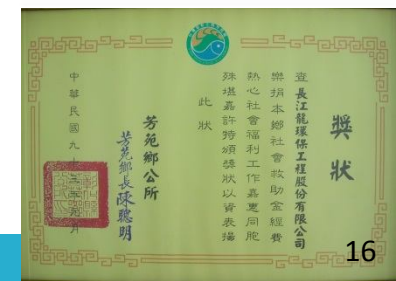 獎狀
查長江龍環保工程股份有限公司
樂捐本鄉社會救助金經費
熱心社會福利工作嘉惠同胞
殊堪嘉許特頒獎狀以資表揚
此狀
芳苑鄉公所
芳苑鄉長陳聰明
中華民國九十三年元月
16